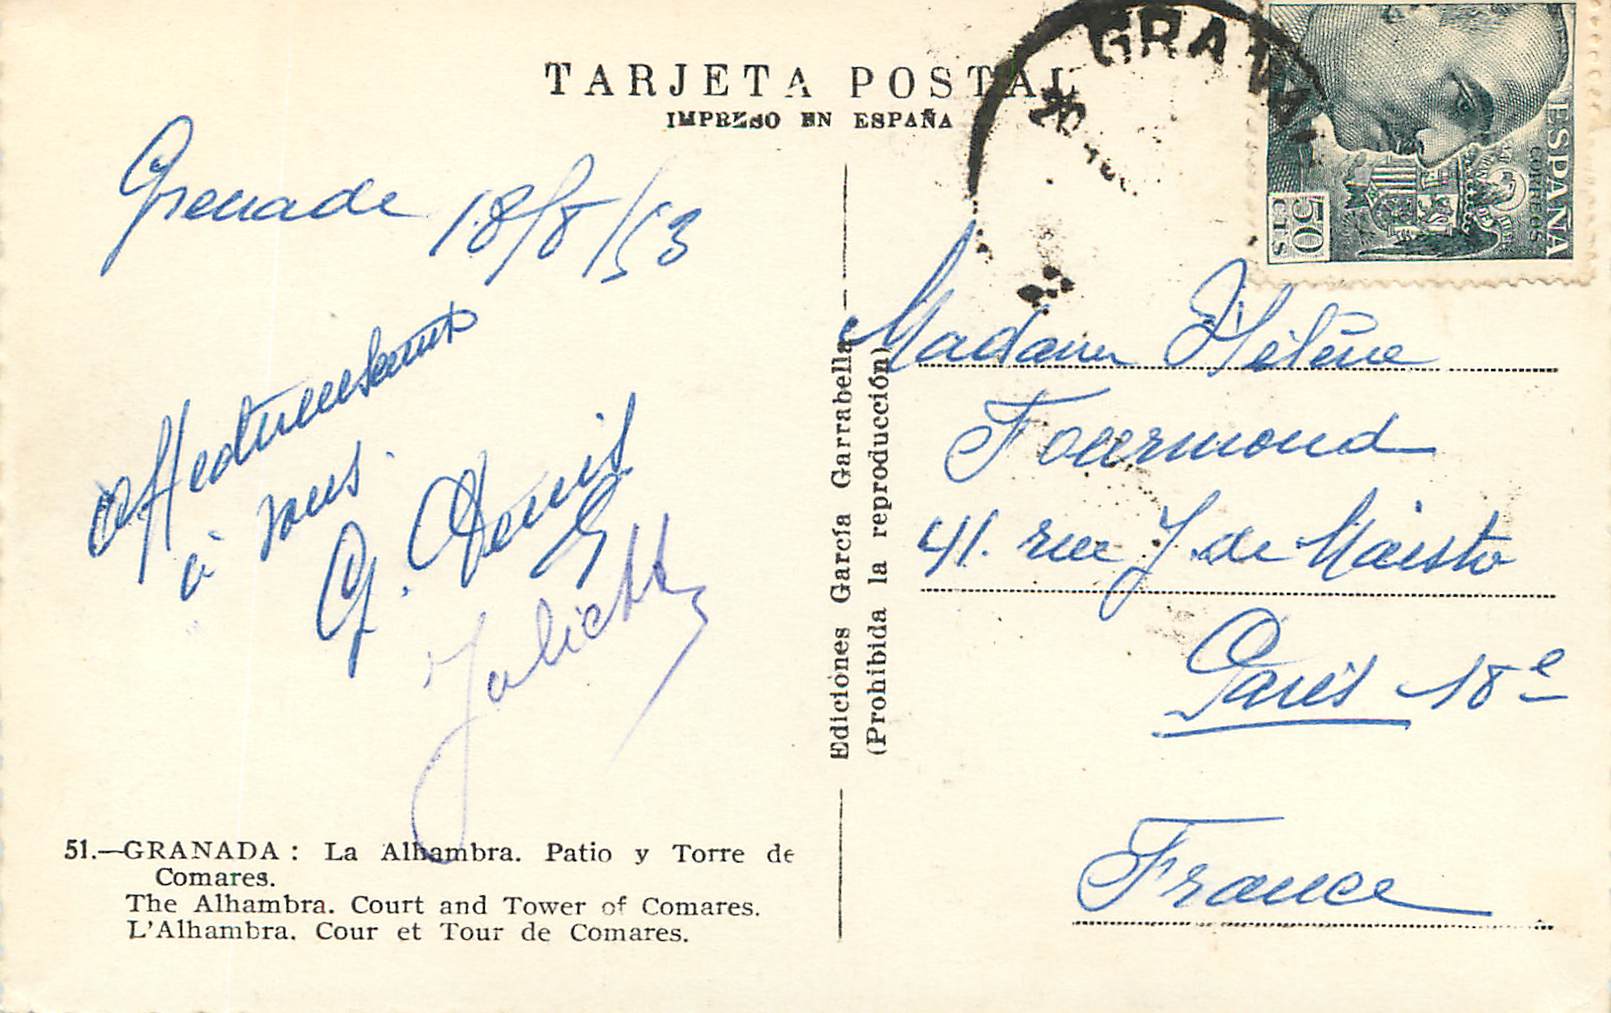 TARJETA POSTAL
IMPRESO EN ESPAÑA
GRANA
20
ESPAÑA
CORREOS
50
CTS
Grenade 18/8/53
affectueusement
à vous.
G. Denis
Juliette
Ediciones García Garrabella
(Prohibida la reproducción)
Madame Hélène
Fourmond
41. rue J. de Maistre
Paris 18e
France
51.—GRANADA: La Alhambra. Patio y Torre de
Comares.
The Alhambra. Court and Tower of Comares.
L'Alhambra. Cour et Tour de Comares.